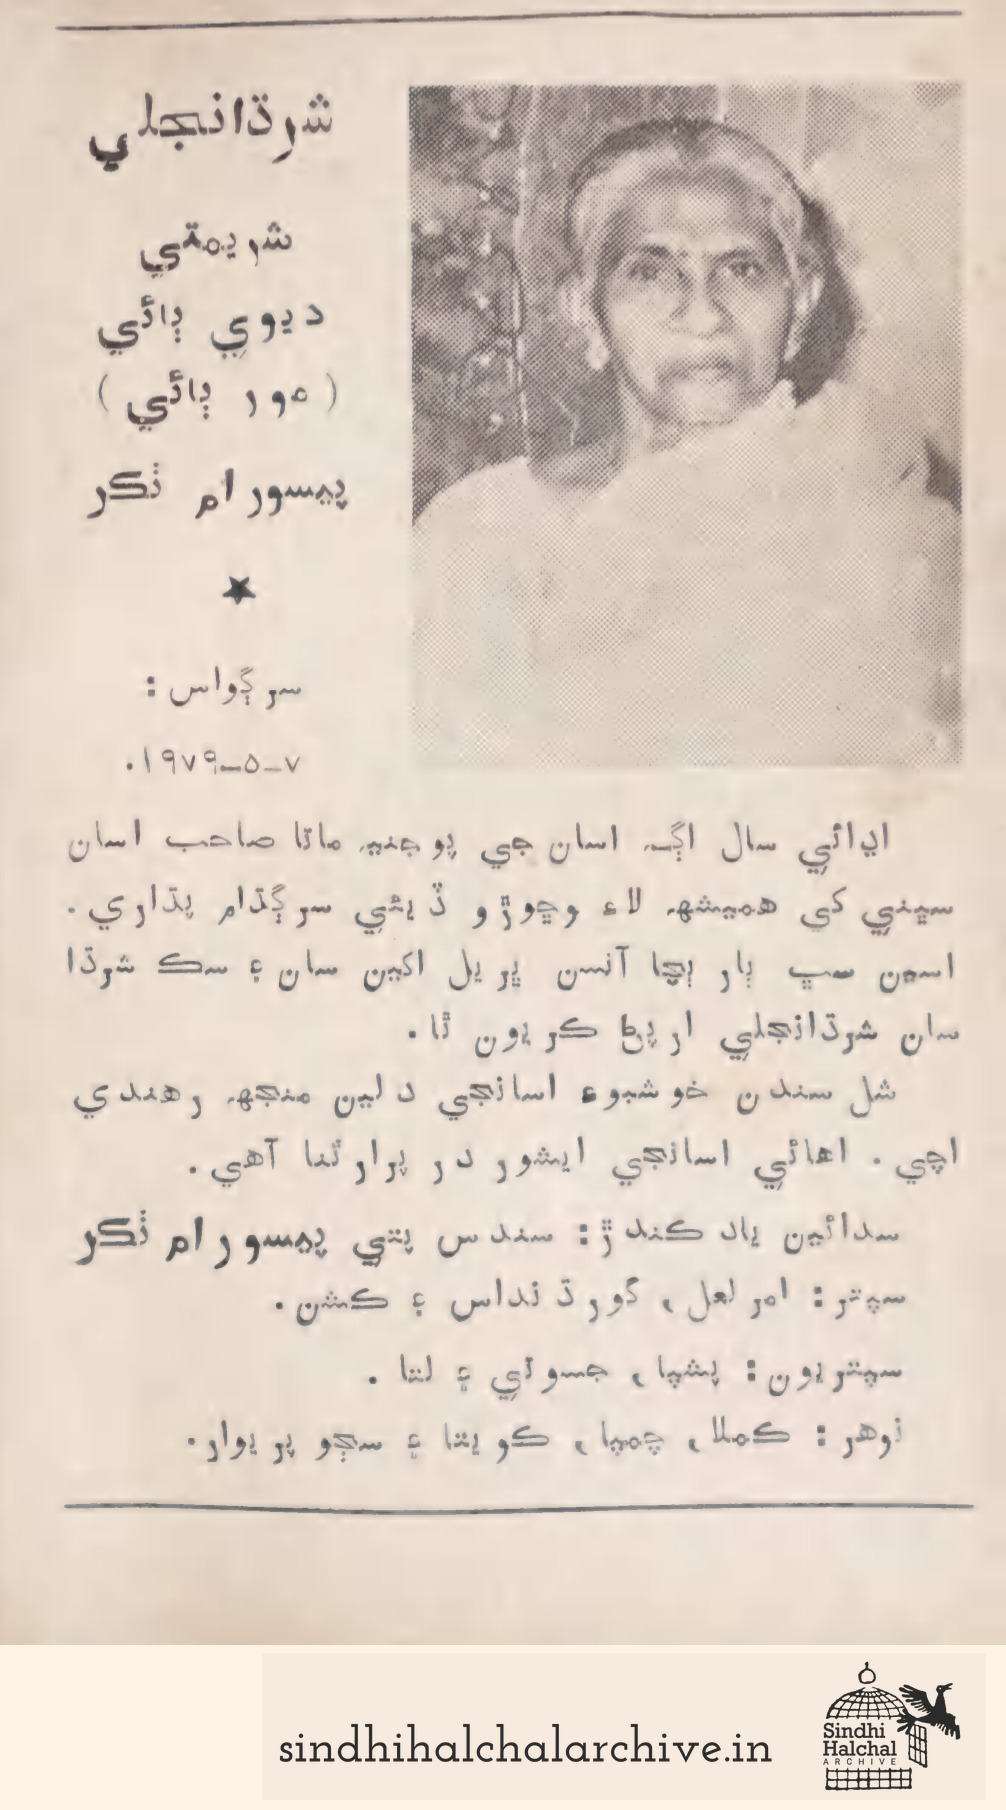 شرڌانجلي
شريمتي
ديوي ٻائي
( مور ٻائي )
پيسورام ٺڪر
سرڳواس :
٧_٥_١٩٧٩.
اڍائي سال اڳ اسان جي پوجنيه ماتا صاحب اسان
سڀني کي هميشھ لاءِ وڇوڙو ڏيئي سرڳڌام پڌاري.
اسين سڀ ٻار ٻچا آنسن ڀريل اکين سان ۽ سڪ شرڌا
سان شرڌانجلي ارپڻ ڪريون ٿا.
شل سندن خوشبوءِ اسانجي دلين منجھ رهندي
اچي. اهائي اسانجي ايشور در پرارٿنا آهي.
سدائين ياد ڪندڙ: سندس پتي پيسورام ٺڪر
سپتر: امر لعل، گورڌنداس ۽ ڪشن.
سپتريون: پشپا، جسوتي ۽ لتا.
نوهر: ڪملا، چمپا، ڪويتا ۽ سڄو پريوار.
sindhihalchalarchive.in
Sindhi
Halchal
ARCHIVE